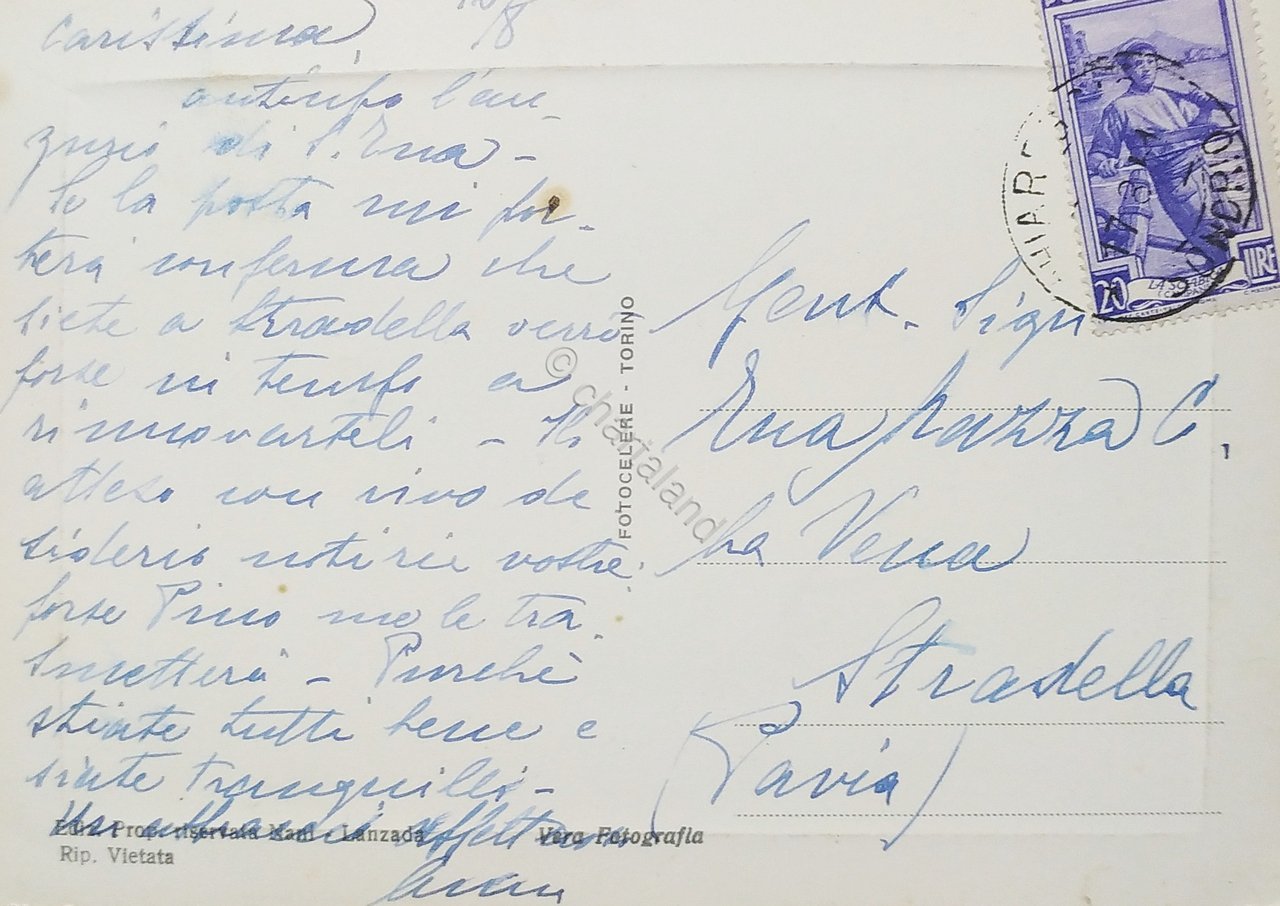 Carissima,
anticipo l'au_
gurio di S. Ena -
Se la posta mi por_
terà conferma che
siete a Stradella verrò
forse in tempo a
rinnovarteli - Ho
atteso con vivo de
siderio notizie vostre
forse Pino me le tra_
smetterà - Purchè
stiate tutti bene e
siate tranquilli -
Ediz. Prop. riservata Nani - Lanzada
Rip. Vietata
Vera Fotografia
FOTOCELERE - TORINO
© chartaland
20
LIRE
17.8
Gent. Sign
Ena Pazza C.
La Vena
Stradella
(Pavia)